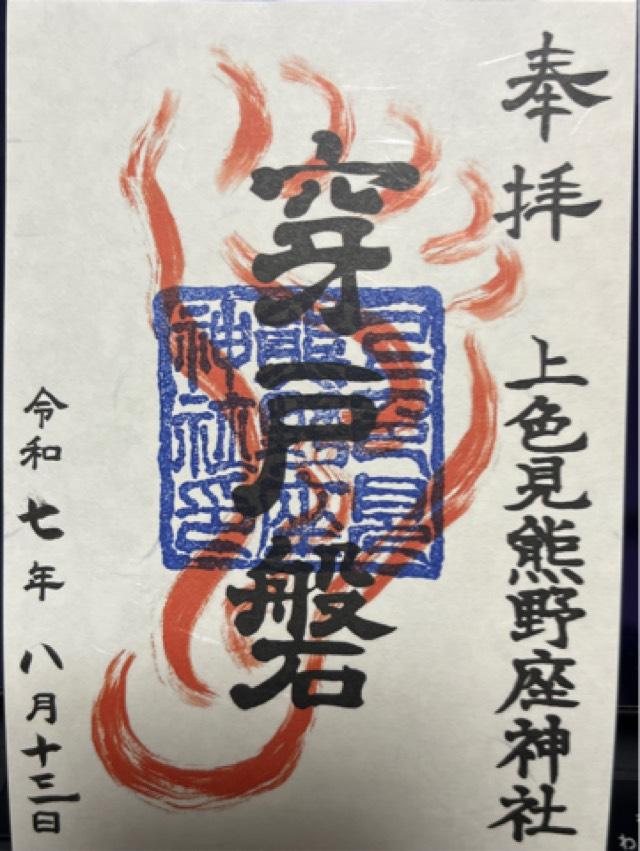 奉拝
上色見熊野座神社
穿戸磐
上色見
熊野座
神社印
令和七年八月十三日